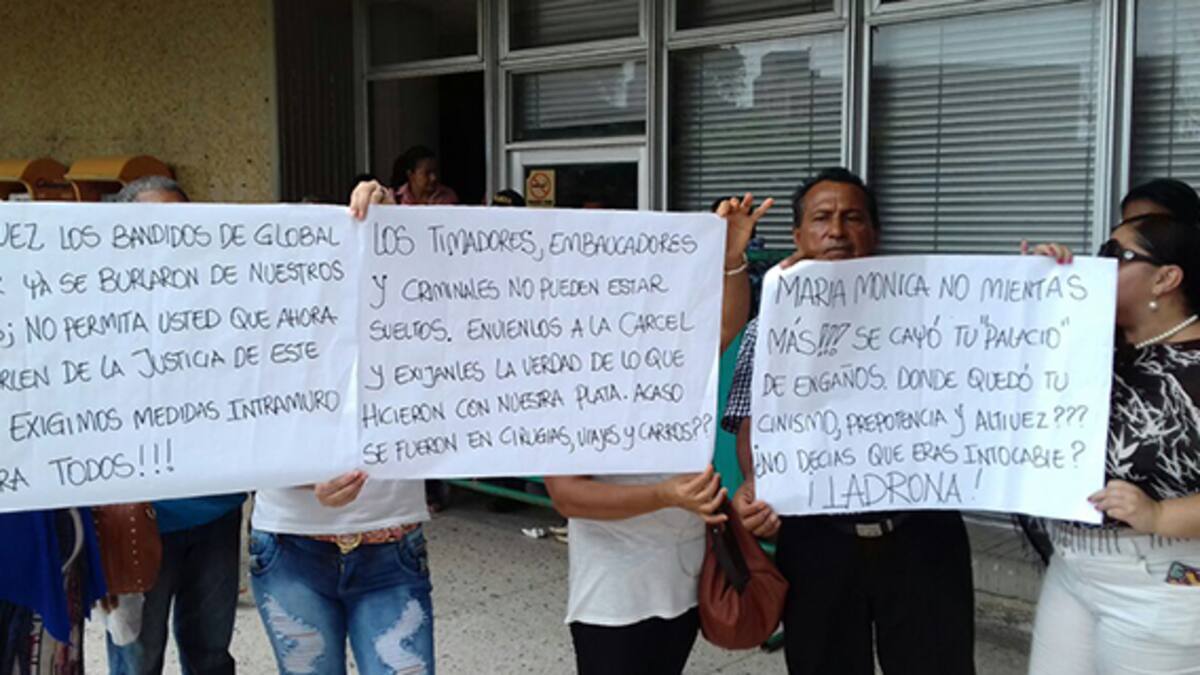 UEZ LOS BANDIDOS DE GLOBAL
YÁ SE BURLARON DE NUESTROS
¡ NO PERMITA USTED QUE AHORA
RLEN DE LA JUSTICIA DE ESTE
EXIGIMOS MEDIDAS INTRAMURO
RA TODOS!!!
LOS TIMADORES, EMBAUCADORES
Y CRIMINALES NO PUEDEN ESTAR
SUELTOS. ENVIENLOS A LA CARCEL
Y EXIJANLES LA VERDAD DE LO QUE
HICIERON CON NUESTRA PLATA. ACASO
SE FUERON EN CIRUGIAS, VIAJES Y CARROS??
MARIA MONICA NO MIENTAS
MÁS!!! SE CAYÓ TU "PALACIO"
DE ENGAÑOS. DONDE QUEDÓ TU
CINISMO, PREPOTENCIA Y ALTIVEZ???
¿NO DECIAS QUE ERAS INTOCABLE?
¡LADRONA!